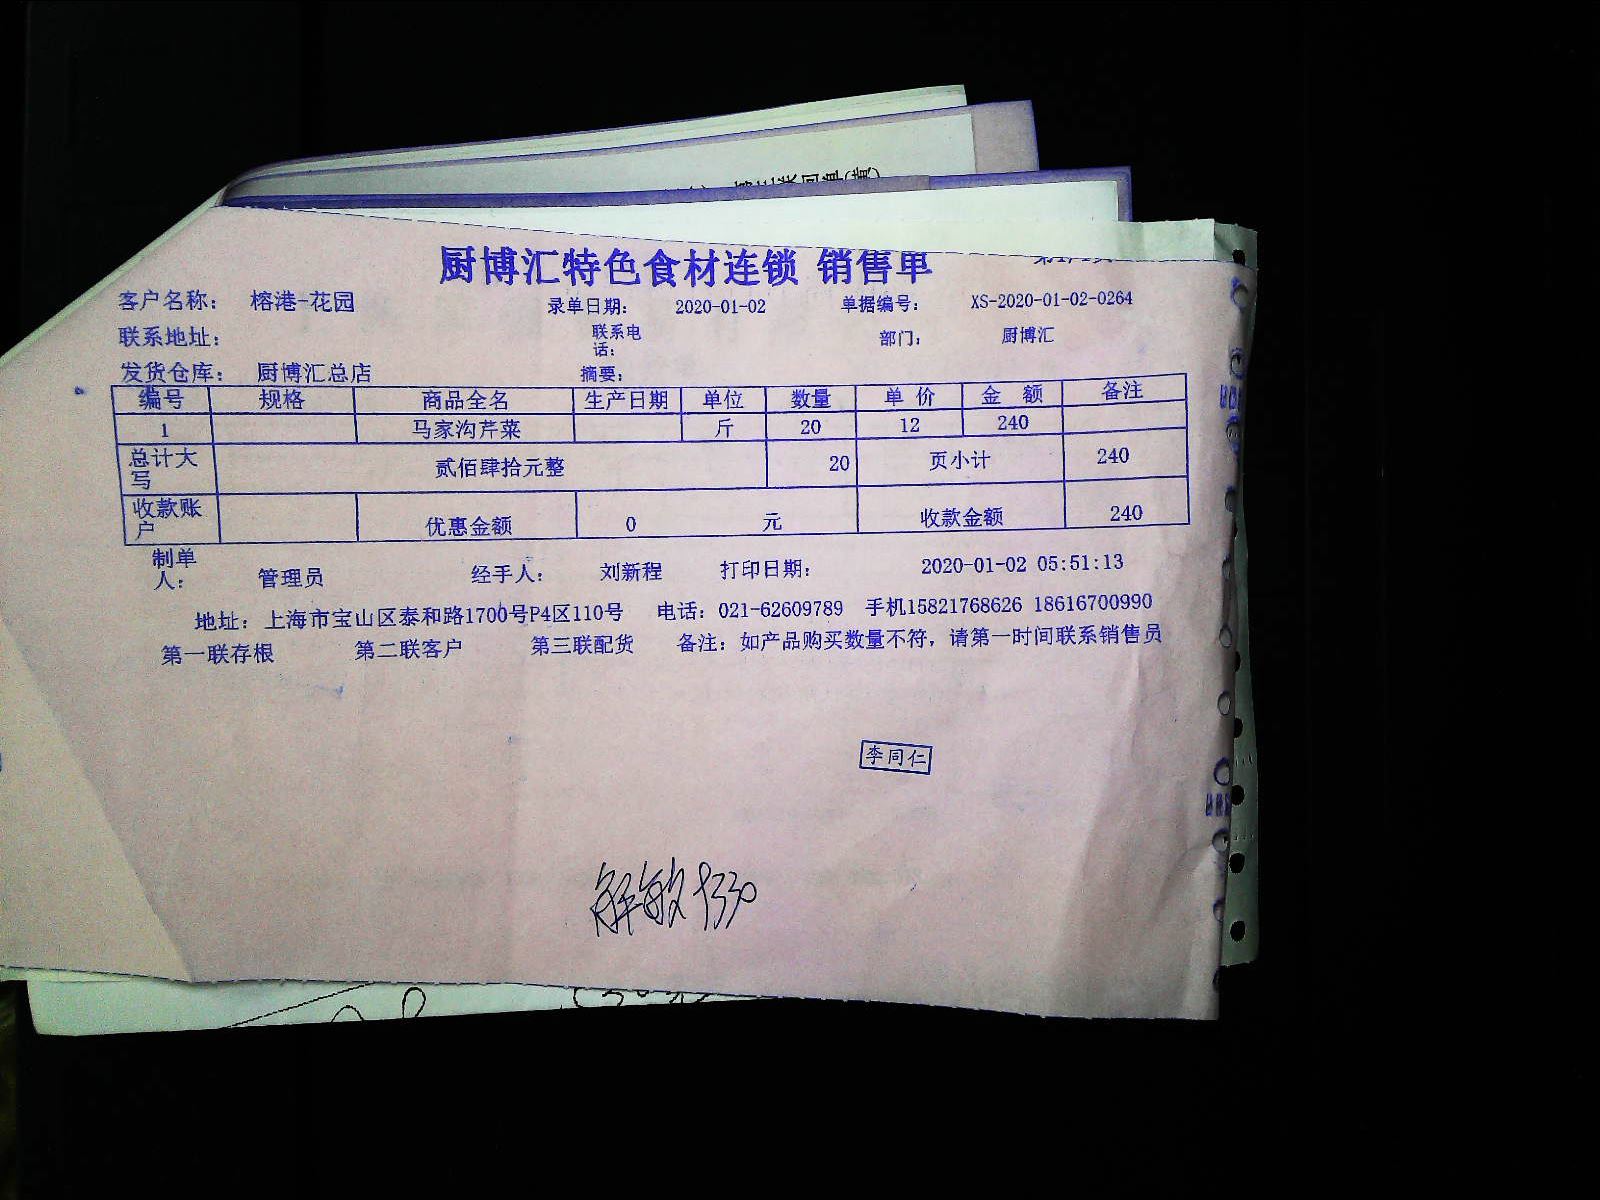 厨博汇特色食材连锁 销售单
客户名称： 榕港-花园 录单日期： 2020-01-02 单据编号： XS-2020-01-02-0264
联系地址： 联系电话： 部门： 厨博汇
发货仓库： 厨博汇总店 摘要：
编号 规格 商品全名 生产日期 单位 数量 单 价 金 额 备注
1 马家沟芹菜 斤 20 12 240
总计大写 贰佰肆拾元整 20 页小计 240
收款账户 优惠金额 0 元 收款金额 240
制单人： 管理员 经手人： 刘新程 打印日期： 2020-01-02 05:51:13
地址：上海市宝山区泰和路1700号P4区110号 电话：021-62609789 手机15821768626 18616700990
第一联存根 第二联客户 第三联配货 备注：如产品购买数量不符，请第一时间联系销售员
李同仁